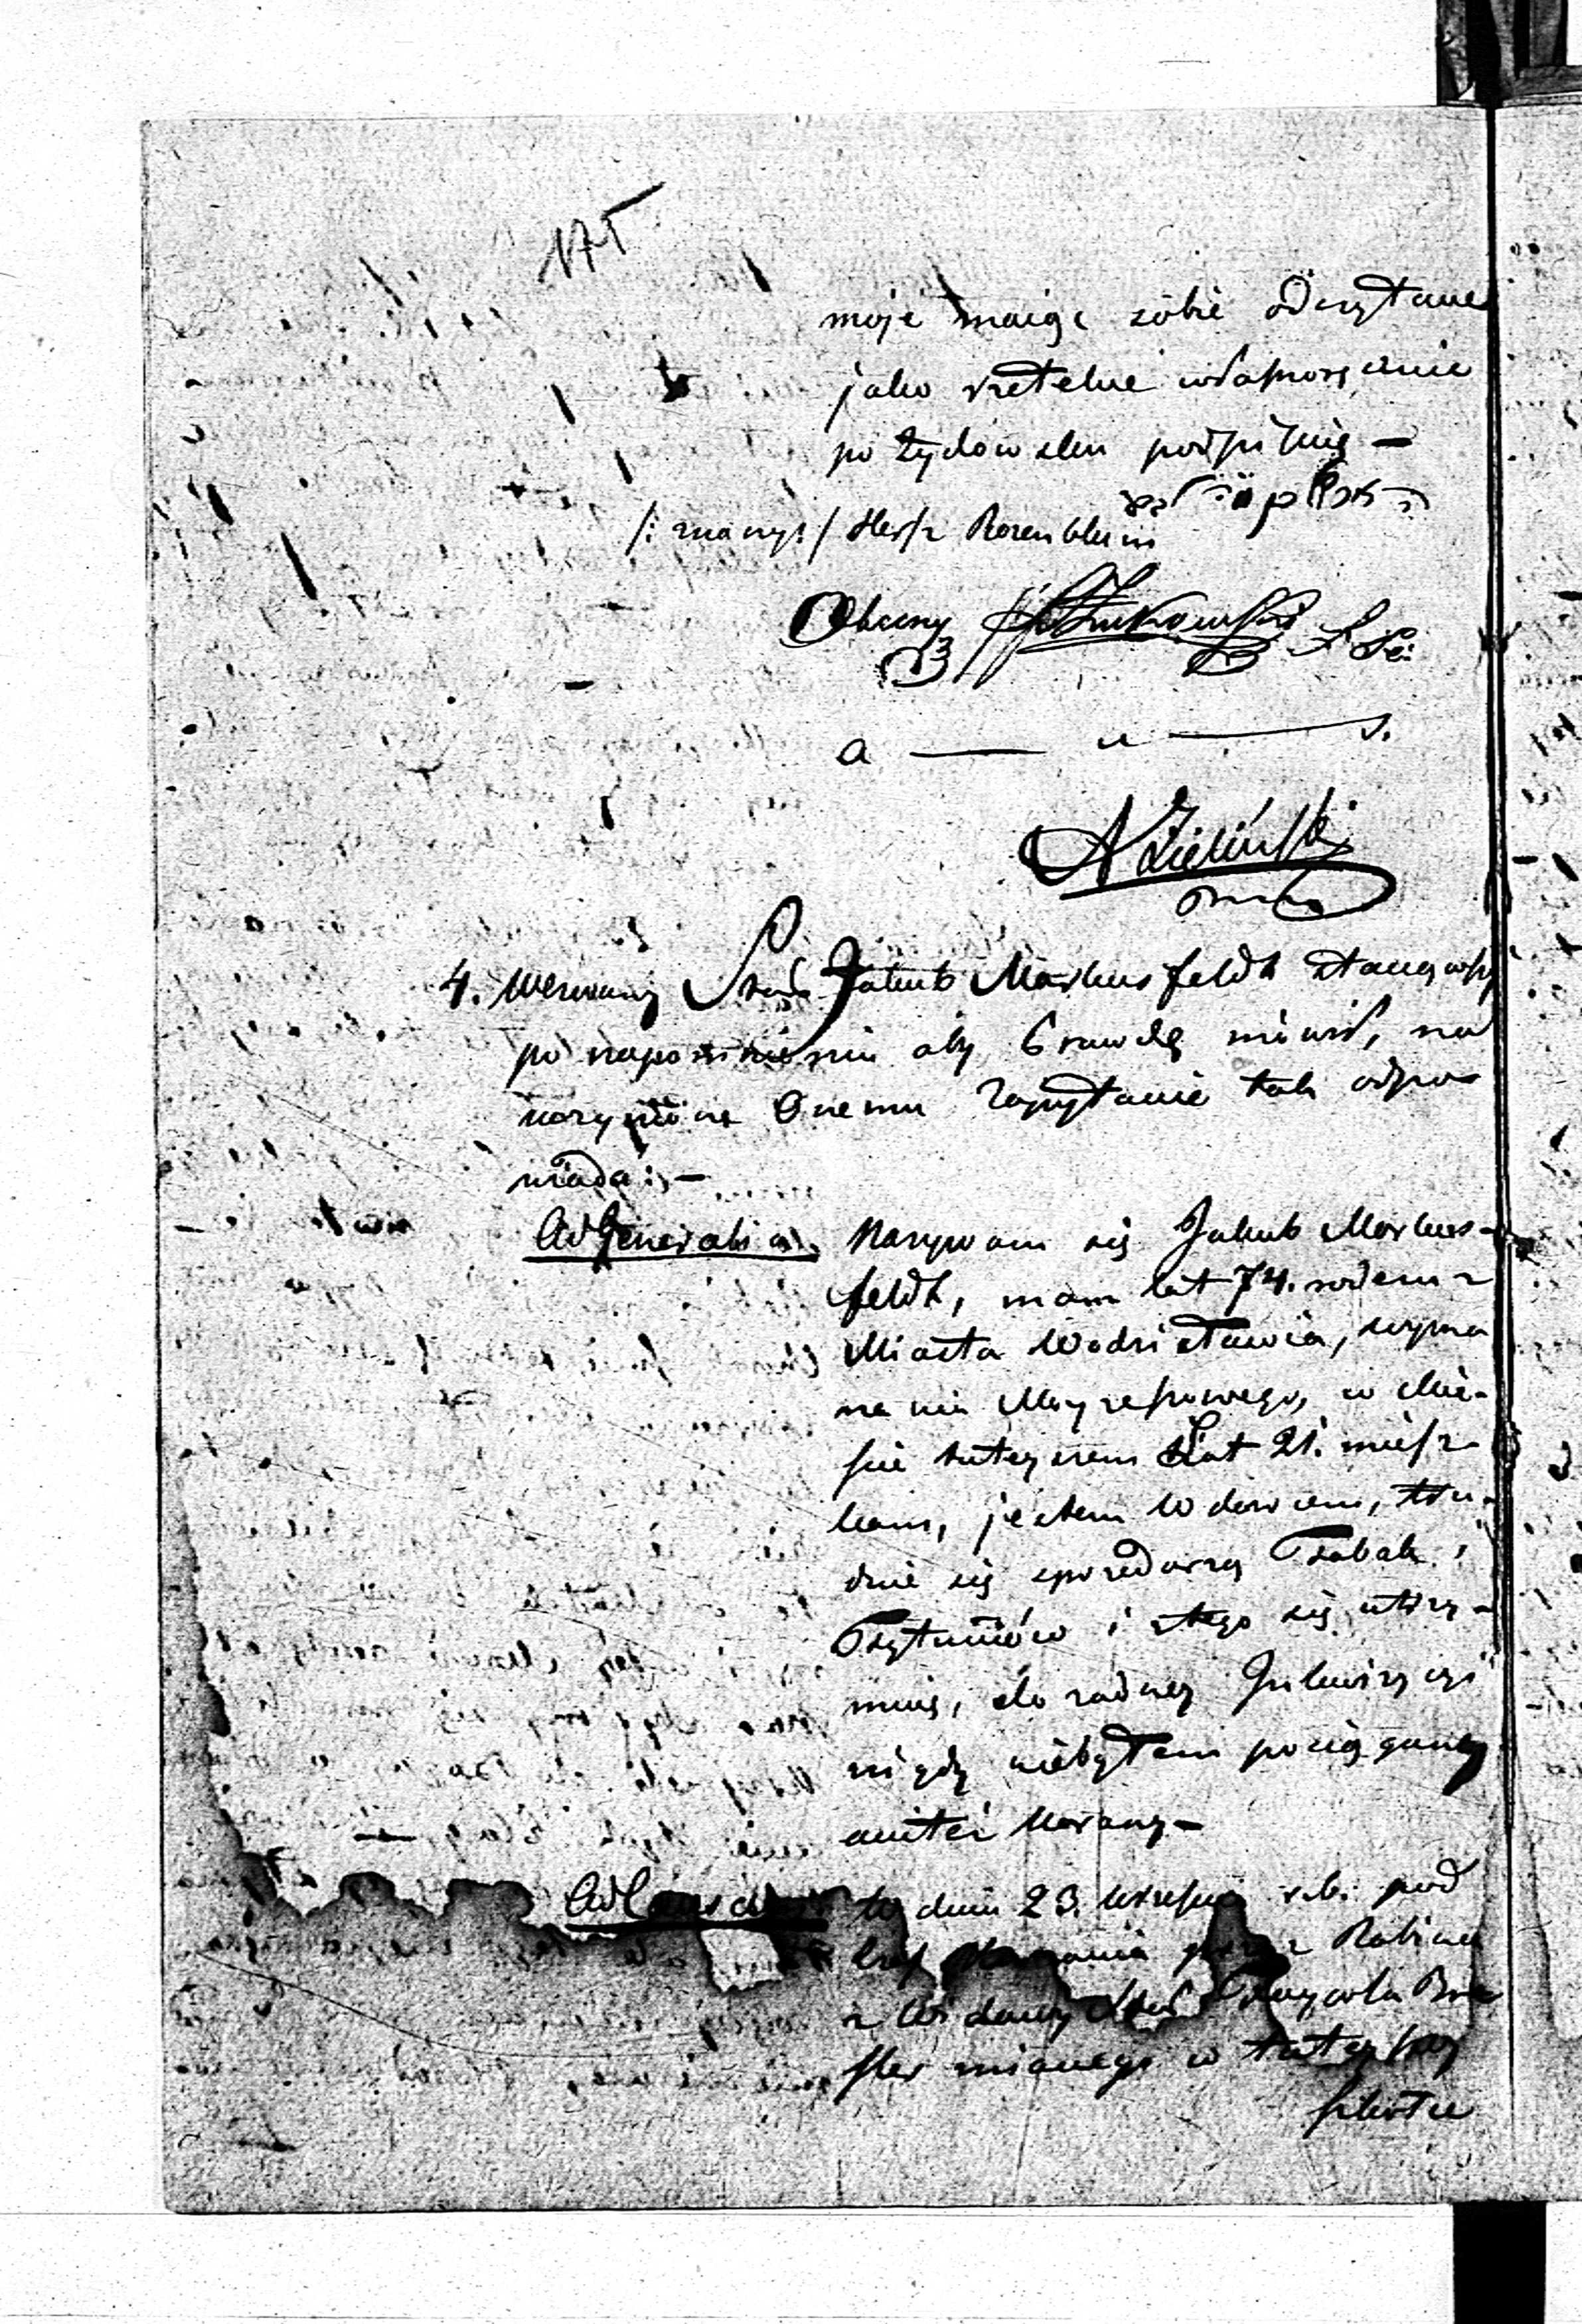 175
moje maiąc sobie odczytane
jako rzetelne własnoręcznie
po żydowsku podpisuię —
/: znaczy :/ Hersz Rosenblum
Obecny Żukowski
a — u — s.
A Zieliński
4. Wezwany Stad Jakub Markusfeldt stanąwszy
po napomnieniu aby Prawdę mówił, na
uczynione Onemu Zapytanie tak odpo
wiada: —
Ad Generalia. Nazywam się Jakub Markus-
feldt, mam lat 74. rodem z
Miasta Wodzisławia, wyzna
nia Moyżeszowego, w Mie-
ście tuteyszem Lat 21. miesz-
kam, jestem Wdowcem, tru-
dnię się sprzedarzą Tabak i
Tytuniów i z tego się utrzy-
muię, do żadney Inkwizycyi
nigdy niebyłem pociągany
aniteż karany —
Ad Causam W dniu 23. Września r. b. pod
czas Kazania przez Rabina
z Widawy Stad
mianego w tuteyszey
szkole